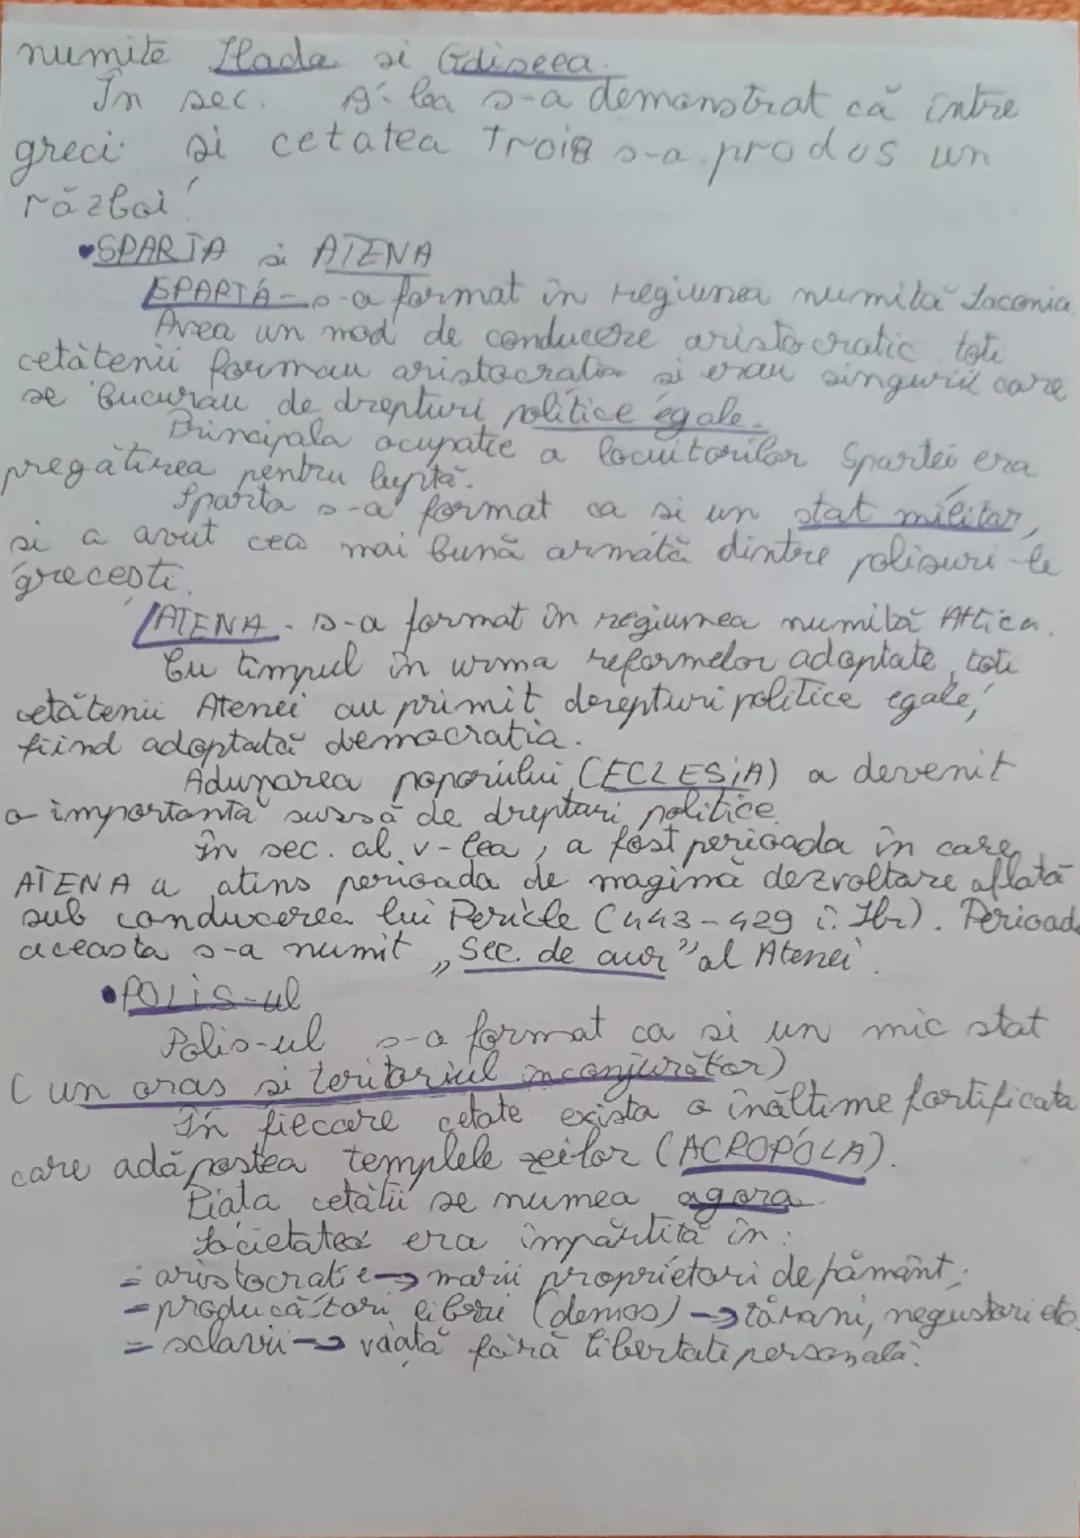 numite Ilada si Odiseea.
În sec. 19-lea s-a demonstrat că între
greci si cetatea Troia s-a produs un
război.
•SPARTA si ATENA
SPARTA - s-a format în regiunea numită Laconia
Avea un mod de conducere aristocratic toti
cetătenii formau aristocratia si erau singurii care
se bucurau de drepturi politice egale.
Principala ocupatie a locuitorilor Spartei era
pregătirea pentru luptă.
Sparta s-a format ca si un stat militar,
si a avut cea mai bună armată dintre polisuri-le
grecesti.
ATENA - s-a format în regiunea numită Attica.
Cu timpul în urma reformelor adoptate, toti
cetătenii Atenei au primit derepturi politice egale,
fiind adoptată democratia.
Adunarea poporului (ECLESIA) a devenit
o importanta sursă de drepturi politice.
În sec. al v-lea, a fost perioada în care
ATENA a atins perioada de magimă dezvoltare aflată
sub conducerea lui Pericle (443-429 î. Hr). Perioada
aceasta s-a numit „Sec. de aur" al Atenei.
•POLIS-ul
Polis-ul s-a format ca si un mic stat
(un oras si teritoriul inconjurător)
În fiecare cetate exista o înăltime fortificata
care adăpostea templele zeilor (ACROPOLA).
Piata cetătii se numea agora
Societatea era împărtită în:
- aristocrati e→ marii proprietari de pământ;
- producători liberi (demos) → tărani, negustori etc.
- sclavii → viată fără libertate personală.